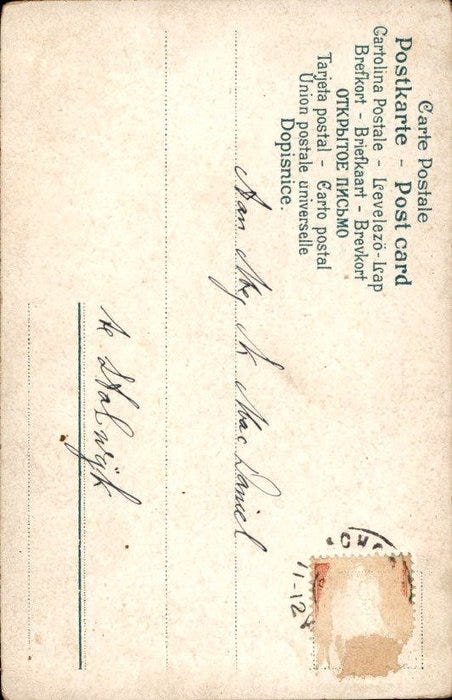 Carte Postale
Postkarte - Post card
Cartolina Postale - Levelező-Lap
Brefkort - Briefkaart - Brevkort
ОТКРЫТОЕ ПИСЬМО
Tarjeta postal - Carto postal
Union postale universelle
Dopisnice.
11-12
Aan Mej. A. Mac Daniel
te Stolwijk